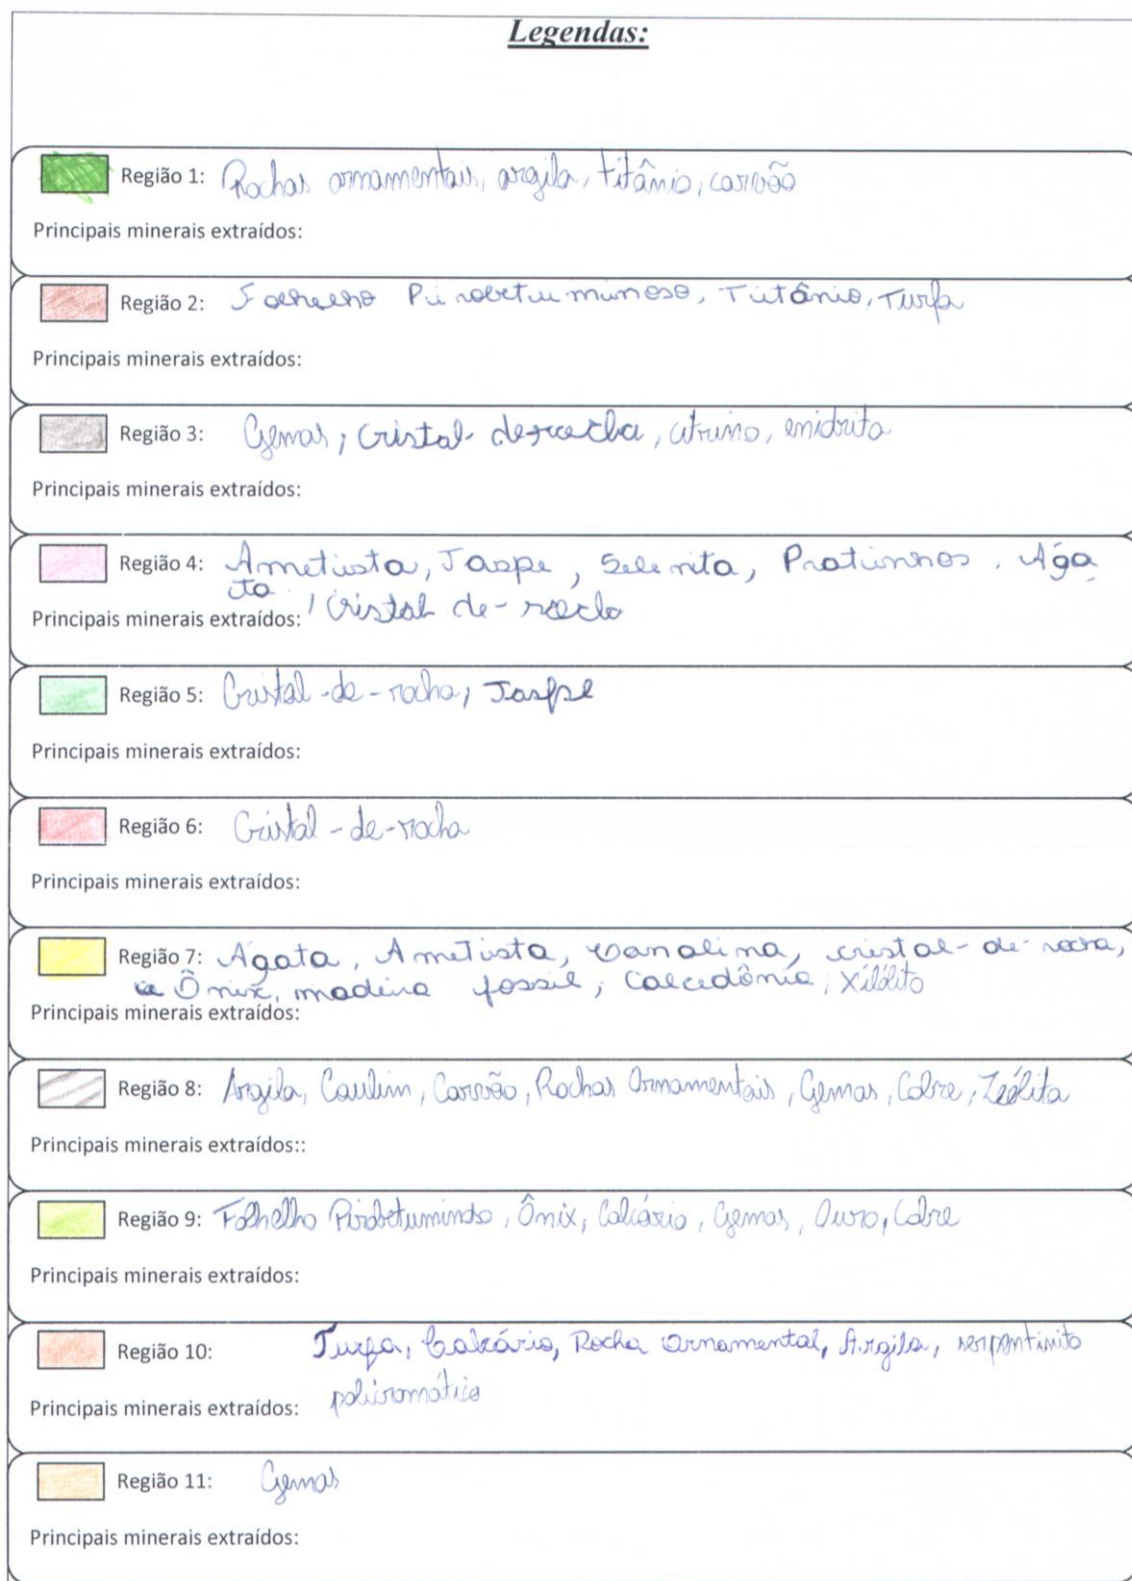 Legendas:
Região 1: Rochas ornamentais, argila, titânio, carvão
Principais minerais extraídos:
Região 2: Folhelho Pirobetuminoso, Titânio, Turfa
Principais minerais extraídos:
Região 3: Gemas, cristal-de-rocha, citrino, enidrita
Principais minerais extraídos:
Região 4: Ametista, Jaspe, Selenita, Pratinhos, Ága
ta, Cristal de-rocha
Principais minerais extraídos:
Região 5: Cristal-de-rocha, Jaspe
Principais minerais extraídos:
Região 6: Cristal-de-rocha
Principais minerais extraídos:
Região 7: Agata, Ametista, cristal-de-rocha,
Ônix, madeira fossil, Calcedônia, Xilólito
Principais minerais extraídos:
Região 8: Argila, Caulim, Carvão, Rochas Ornamentais, Gemas, Cobre, Zeólita
Principais minerais extraídos::
Região 9: Folhelho Pirobetuminoso, Ônix, Calcário, Gemas, Ouro, Cobre
Principais minerais extraídos:
Região 10: Turfa, Calcário, Rocha Ornamental, Argila, serpentinito
policromático
Principais minerais extraídos:
Região 11: Gemas
Principais minerais extraídos: